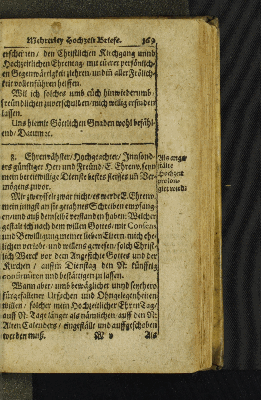 Mehrerley Hochzeit Briefe. 169
erscheinen / den Christlichen Kirchgang unnd
Hochzeitlichen Ehrentag / mit eurer persönlich-
en Gegenwärtigkeit ziehren / und in aller Frölich-
keit vollenführen helffen.
Wil ich solches umb euch hinwiederumb /
freundlichen zuverschulden / mich willig erfinden
lassen.
Uns hiemit Göttlichen Gnaden wohl befähl-
end / Datum etc.
8. Ehrenvhäster / Hochgeachter / Insond-
ers günstiger Herr und Freund / E. Ehrenv. seyn
mein bereitwillige Dienste bestes fleisses un Ver-
mögens zuvor.
Mir zweyfelt zwar nicht / es werde E. Ehrenv.
mein jüngst an sie gethanes Schreiben empfang-
en / und auß demselbẽ verstanden haben: Welcher
gestalt ich nach dem willen Gottes / mit Consens
und Bewilligung meiner lieben Eltern / mich ehe-
lichen verlobt / und willens gewesen / solch Christ-
lich Werck vor dem Angesichte Gottes und der
Kirchen / auff in Dienstag den N. künfftig
continuiren und bestättigen zu lassen.
Wann aber / umb bewäglicher un̄ seythero
fürgefallener Ursachen und Ohngelegenheiten
willen / solcher mein Hochzeitlicher Ehren Tag /
auff N. Tage länger als nämlichen / auff den N.
Alten Calenders / eingestellt und auffgeschoben
werden muß. Als